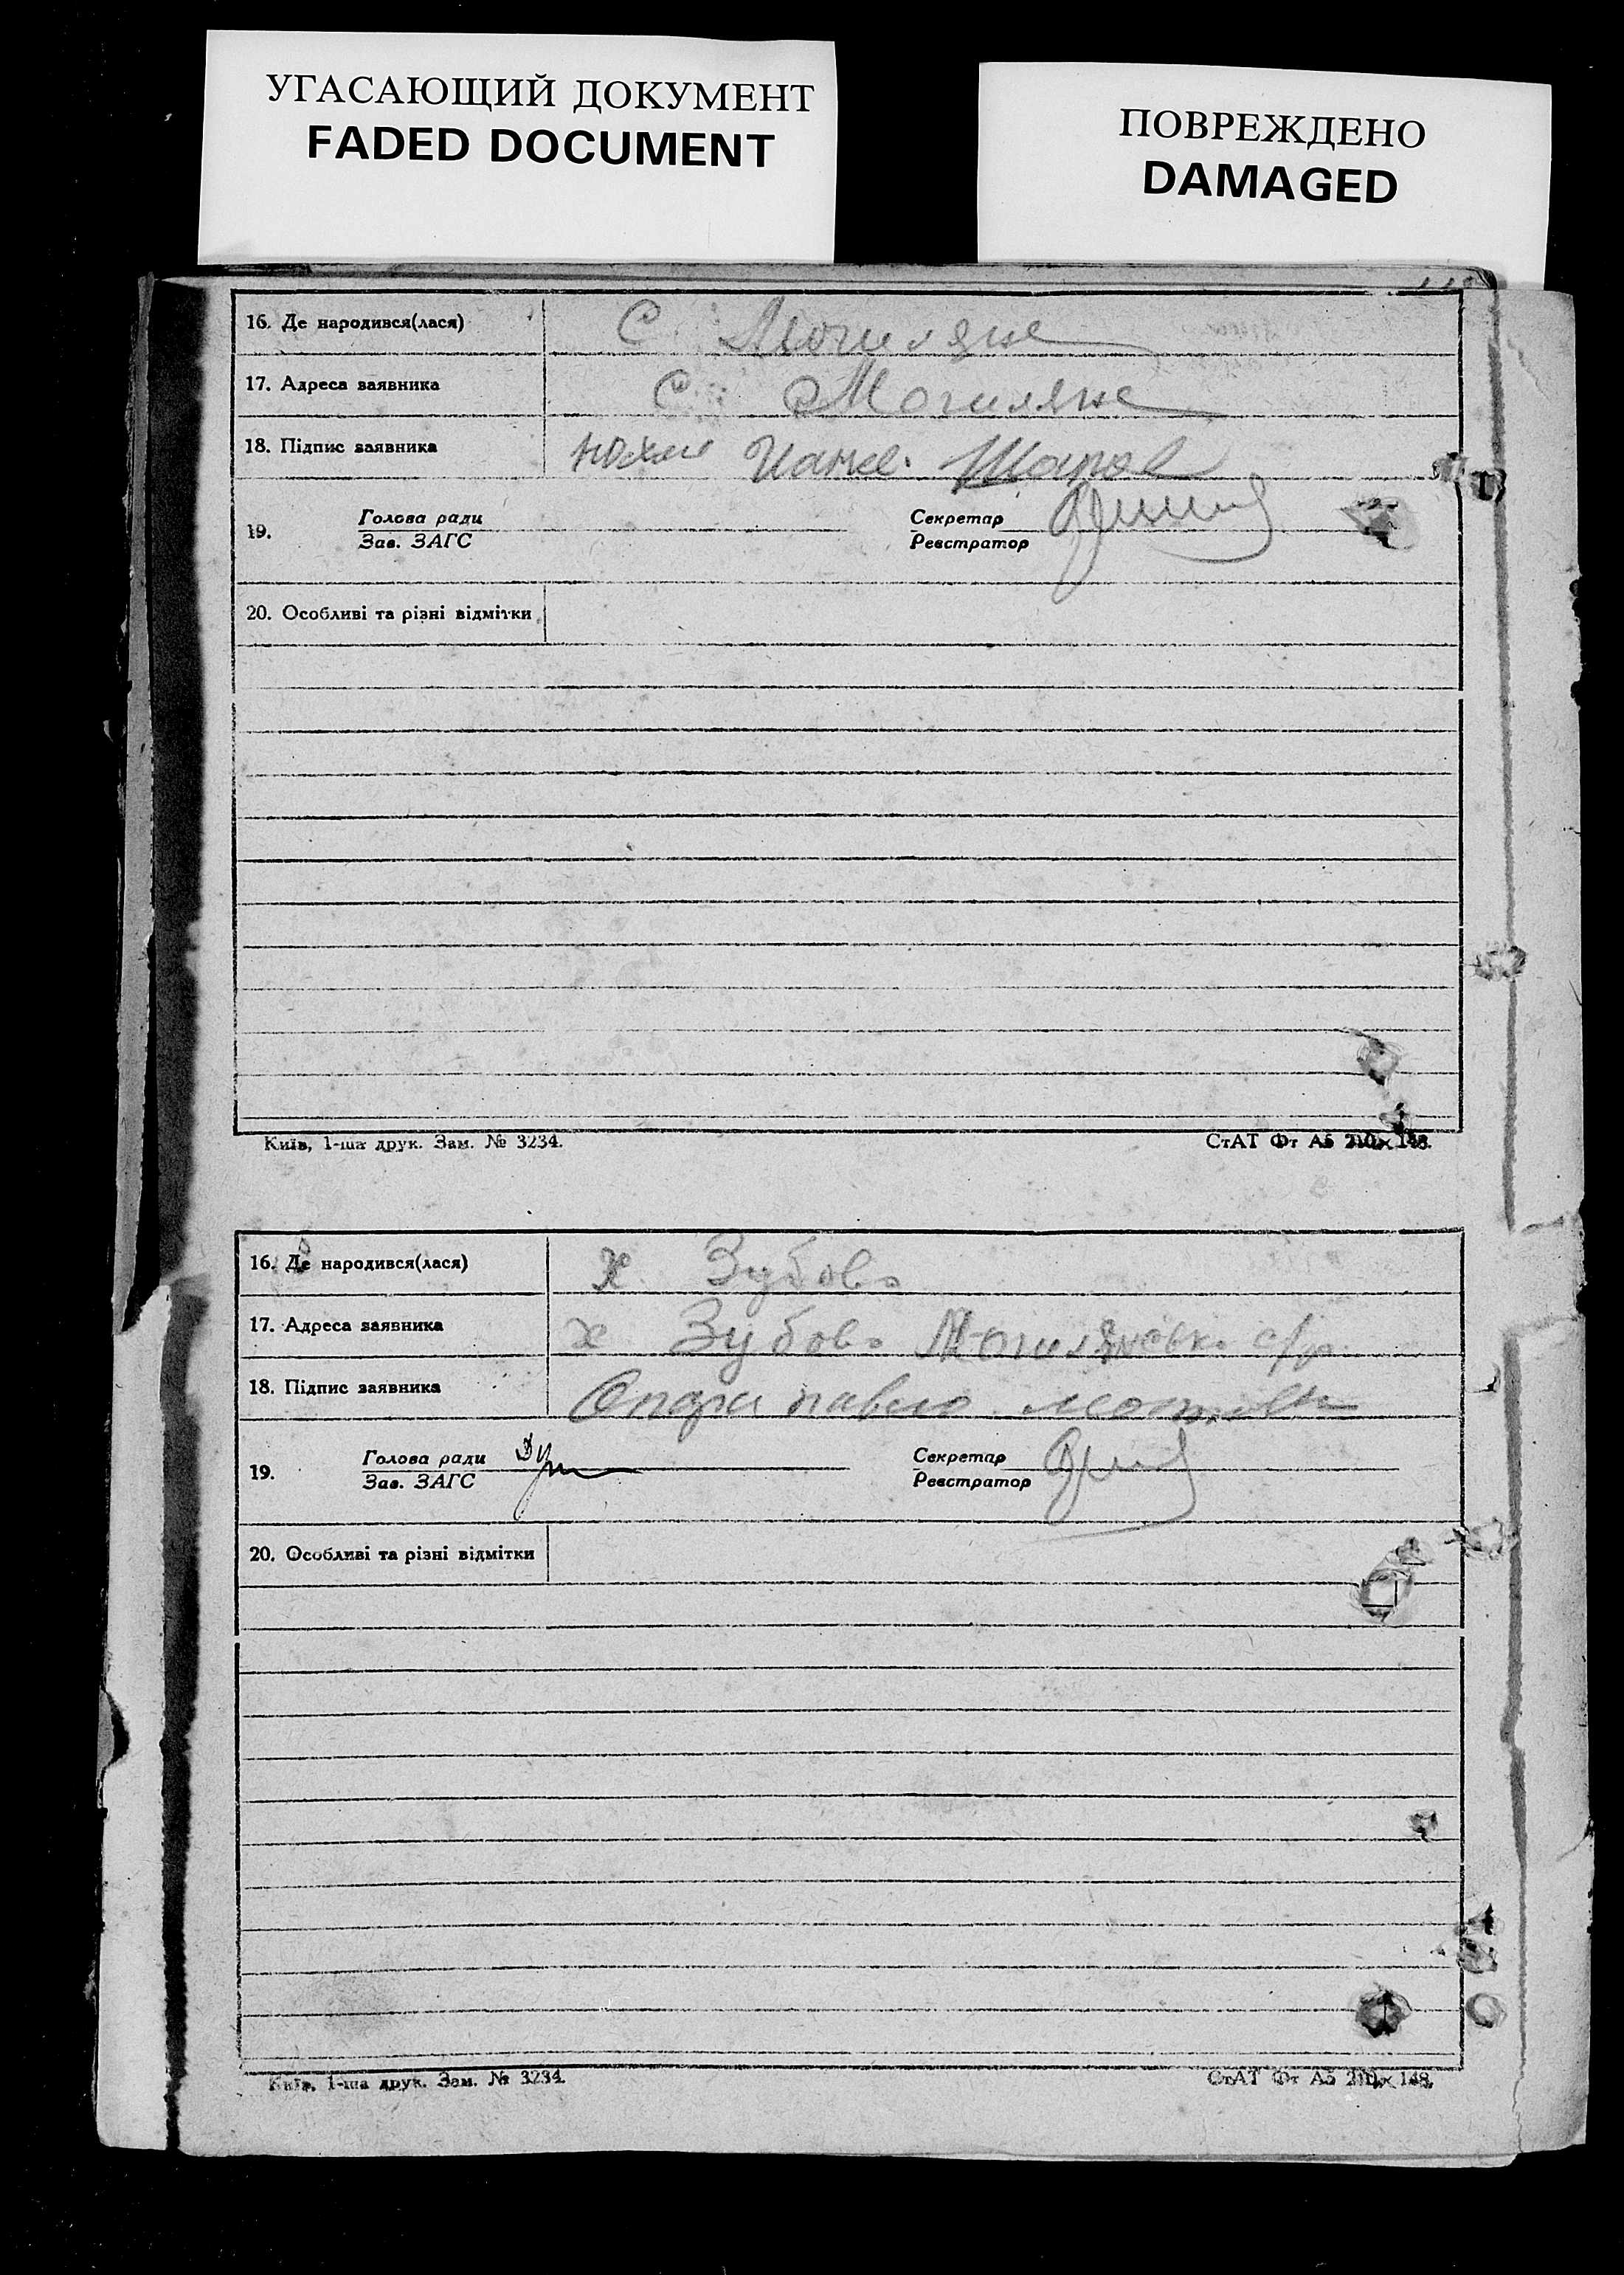 УГАСАЮЩИЙ ДОКУМЕНТ
FADED DOCUMENT
ПОВРЕЖДЕНО
DAMAGED
16. Де народився(лася) С Могиляне
17. Адреса заявника С. Могиляне
18. Підпис заявника
19. Голова ради Секретар
Зав. ЗАГС Реєстратор
20. Особливі та різні відмітки
Київ, 1-ша друк. Зам. № 3234. СтАТ Фт А5 210×148.
16. Де народився(лася) х Зубово
17. Адреса заявника х Зубово Могилянсько с/р
18. Підпис заявника Опари павло
19. Голова ради Секретар
Зав. ЗАГС Реєстратор
20. Особливі та різні відмітки
Київ, 1-ша друк. Зам. № 3234. СтАТ Фт А5 210×148.